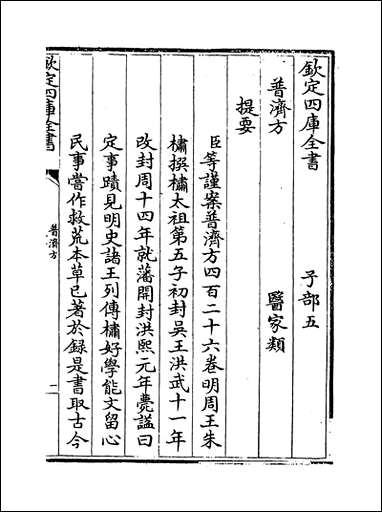 欽定四庫全書　子部五
普濟方　醫家類
提要
臣等謹案普濟方四百二十六卷明周王朱
橚撰橚太祖第五子初封吳王洪武十一年
改封周十四年就藩開封洪熙元年薨諡曰
定事蹟見明史諸王列傳橚好學能文留心
民事嘗作救荒本草已著於録是書取古今
欽定四庫全書
普濟方
一